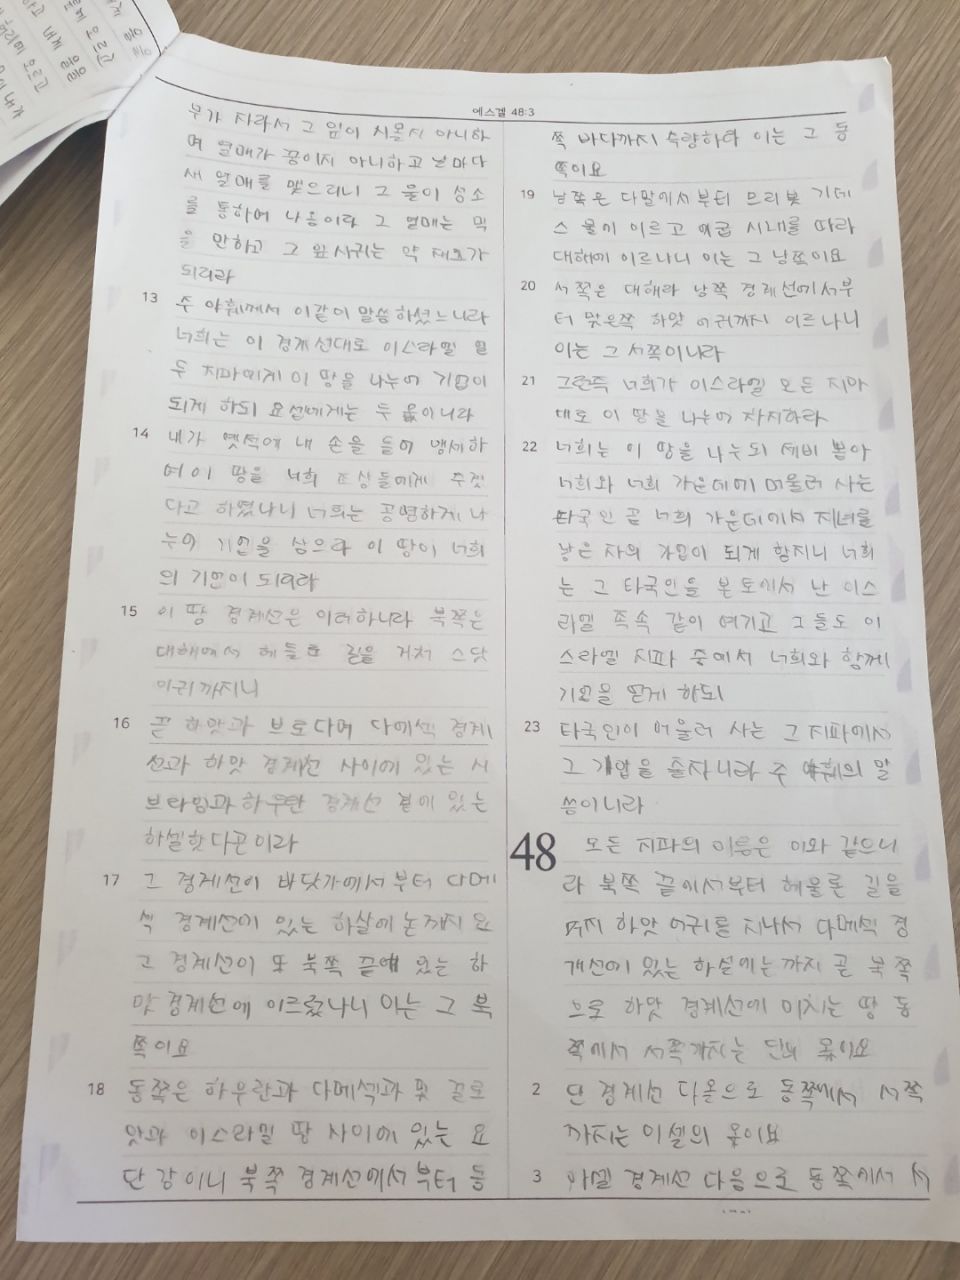 에스겔 48:3
부가 자라서 그 잎이 시들지 아니하
며 열매가 끊이지 아니하고 날마다
새 열매를 맺으리니 그 물이 성소
를 통하여 나옴이라 그 열매는 먹
을 만하고 그 잎사귀는 약 재료가
되리라
13 주 야훼께서 이같이 말씀하셨느니라
너희는 이 경계선대로 이스라엘 열
두 지파에게 이 땅을 나누어 기업이
되게 하되 요셉에게는 두 몫이니라
14 내가 옛적에 내 손을 들어 맹세하
여 이 땅을 너희 조상들에게 주겠
다고 하였나니 너희는 공평하게 나
누어 기업을 삼으라 이 땅이 너희
의 기업이 되리라
15 이 땅 경계선은 이러하니라 북쪽은
대해에서 헤들론 길을 거쳐 스닷
어귀까지니
16 곧 하맛과 브로다며 다메섹 경계
선과 하맛 경계선 사이에 있는 시
브라임과 하우란 경계선 곁에 있는
하셀핫디곤이라
17 그 경계선이 바닷가에서부터 다메
섹 경계선에 있는 하살에논까지 요
그 경계선이 또 북쪽 끝에 있는 하
맛 경계선에 이르렀나니 이는 그 북
쪽이요
18 동쪽은 하우란과 다메섹과 및 길르
앗과 이스라엘 땅 사이에 있는 요
단 강이니 북쪽 경계선에서부터 동
쪽 바다까지 측량하라 이는 그 동
쪽이요
19 남쪽은 다말에서부터 므리봇 가데
스 물에 이르고 애굽 시내를 따라
대해에 이르나니 이는 그 남쪽이요
20 서쪽은 대해라 남쪽 경계선에서부
터 맞은쪽 하맛 어귀까지 이르나니
이는 그 서쪽이니라
21 그런즉 너희가 이스라엘 모든 지파
대로 이 땅을 나누어 차지하라
22 너희는 이 땅을 나누되 제비 뽑아
너희와 너희 가운데에 머물러 사는
타국인 곧 너희 가운데에서 자녀를
낳은 자의 기업이 되게 할지니 너희
는 그 타국인을 본토에서 난 이스
라엘 족속 같이 여기고 그들도 이
스라엘 지파 중에서 너희와 함께
기업을 얻게 하되
23 타국인이 머물러 사는 그 지파에서
그 기업을 줄지니라 주 야훼의 말
씀이니라
48 모든 지파의 이름은 이와 같으니
라 북쪽 끝에서부터 헤울론 길을
거쳐 하맛 어귀를 지나서 다메섹 경
계선에 있는 하살에논까지 곧 북쪽
으로 하맛 경계선에 미치는 땅 동
쪽에서 서쪽까지는 단의 몫이요
2 단 경계선 다음으로 동쪽에서 서쪽
까지는 아셀의 몫이요
3 아셀 경계선 다음으로 동쪽에서 서